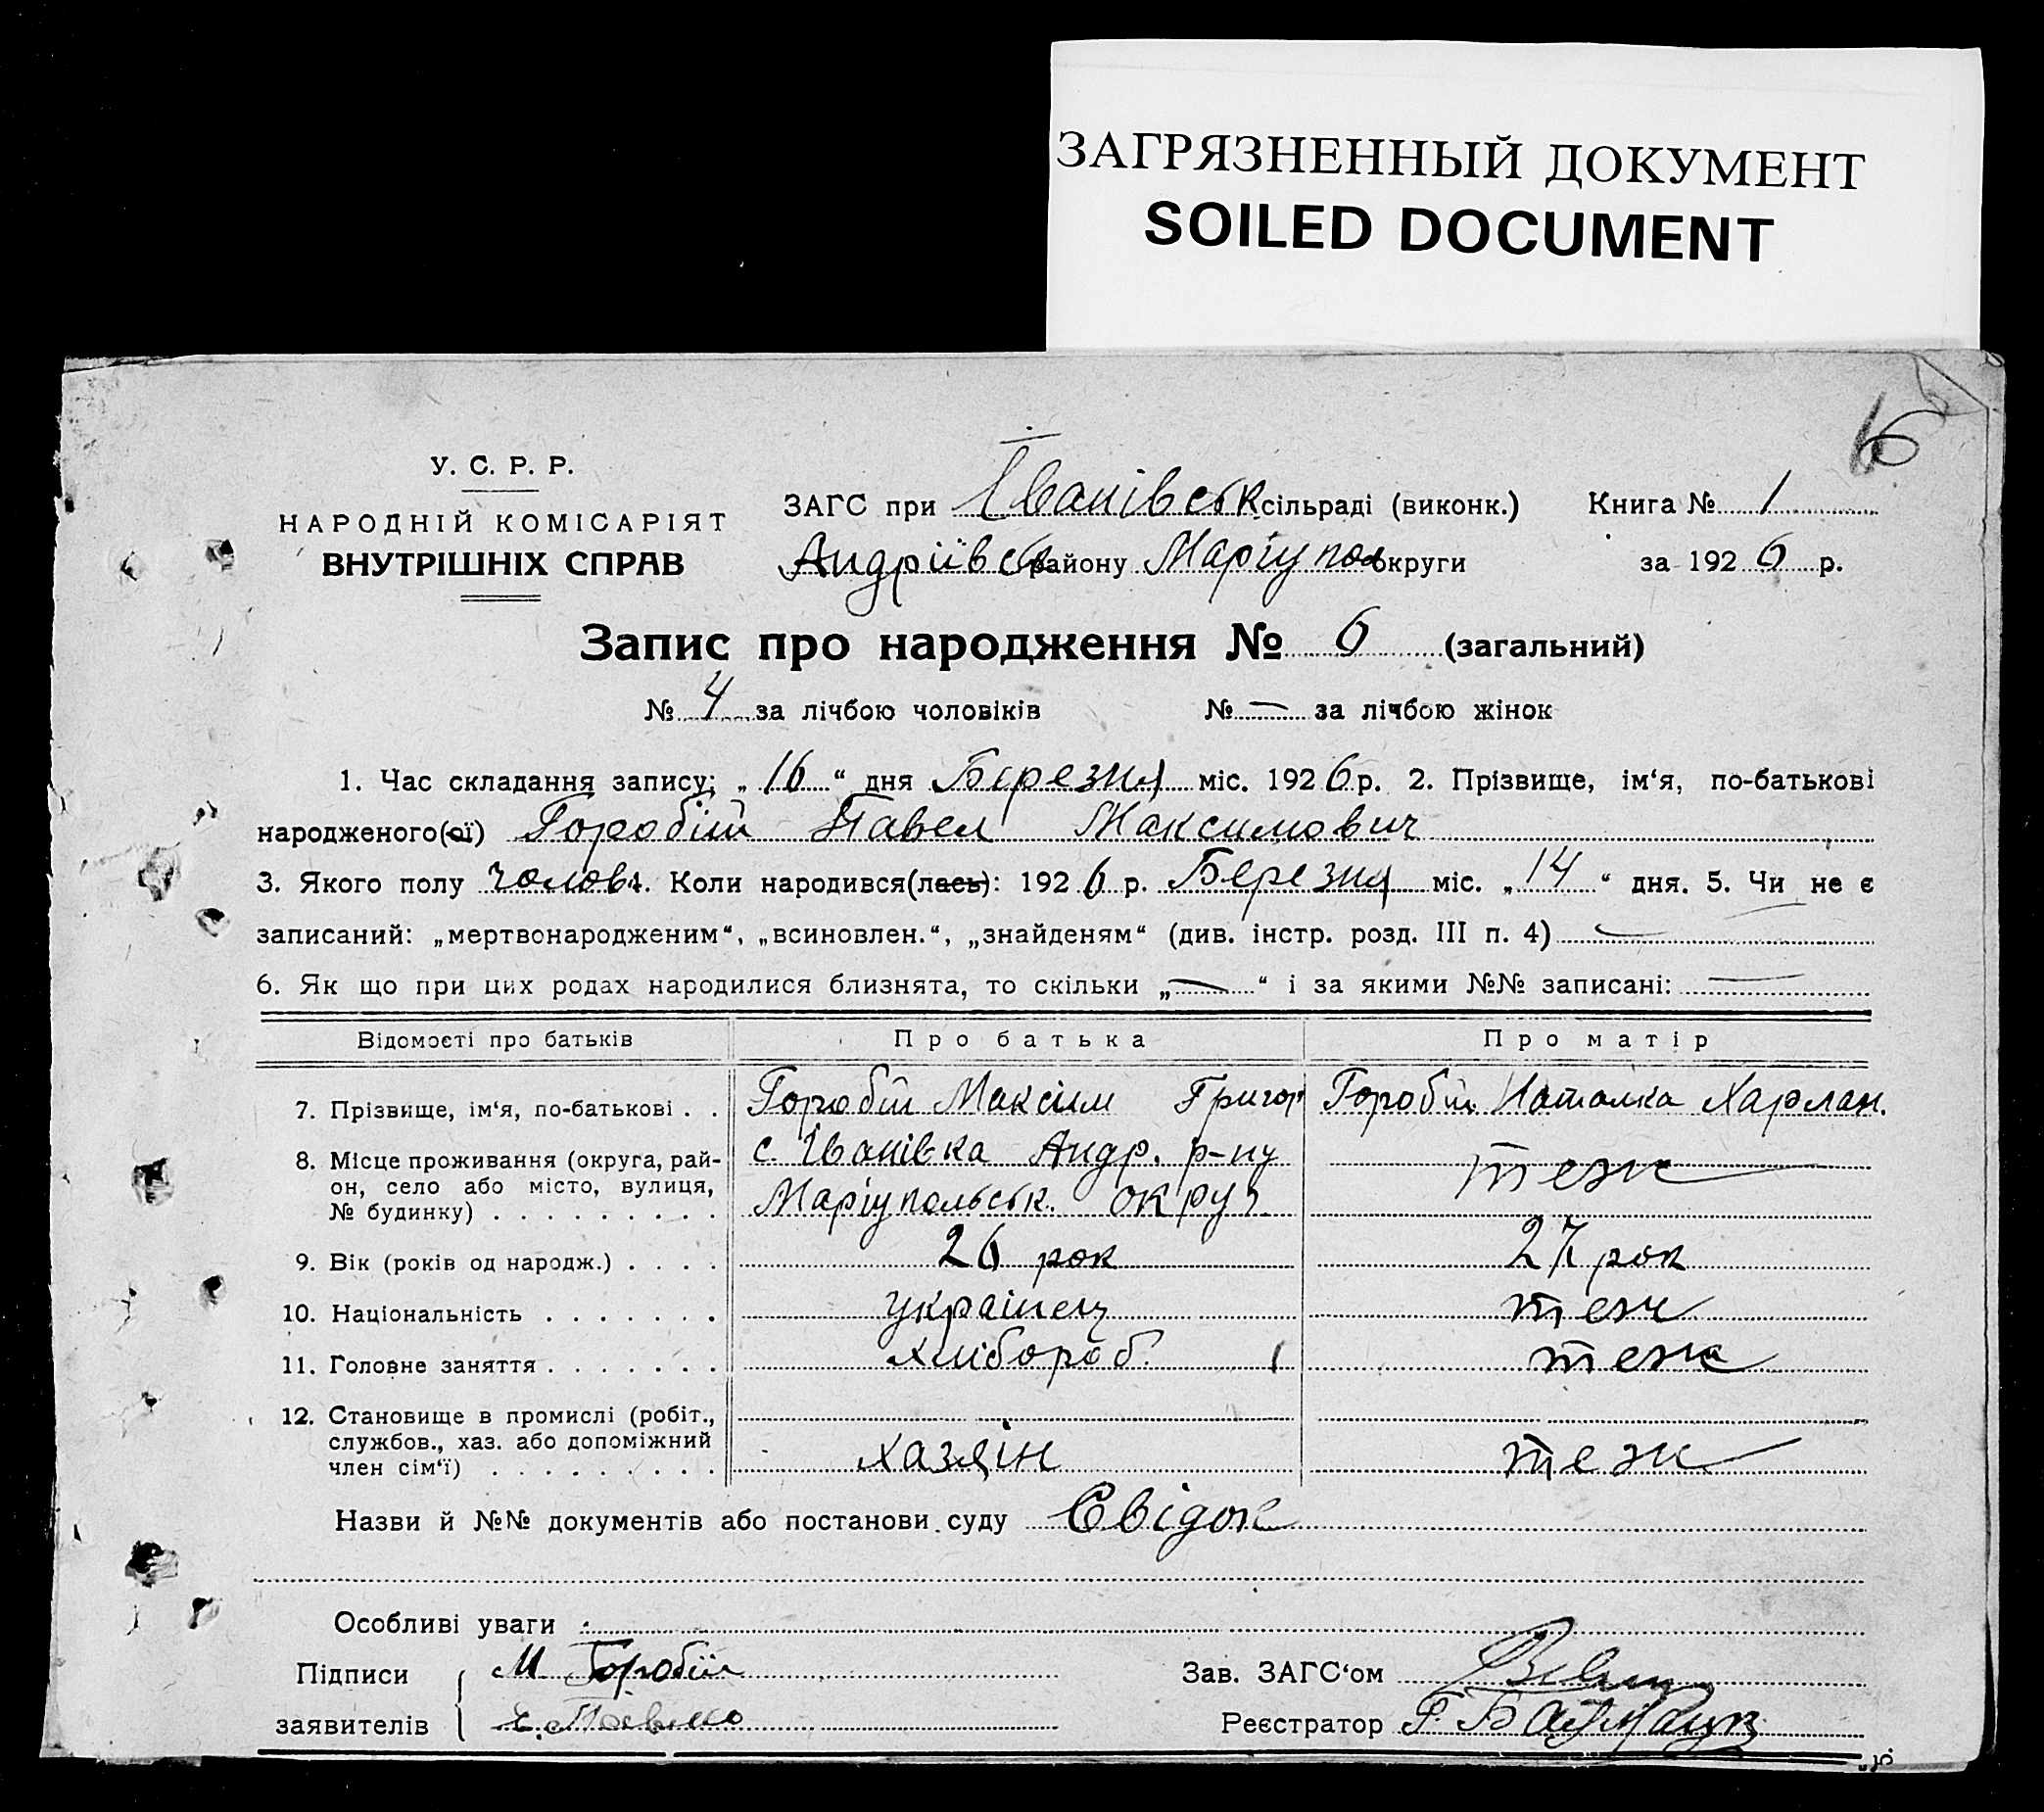 ЗАГРЯЗНЕННЫЙ ДОКУМЕНТ
SOILED DOCUMENT
16
У. С. Р. Р.
НАРОДНІЙ КОМІСАРІЯТ
ВНУТРІШНІХ СПРАВ
ЗАГС при Іванівськ сільраді (виконк.) Книга № 1
Андріївськ району Маріупол округи за 1926 р.
Запис про народження № 6 (загальний)
№ 4 за лічбою чоловіків № — за лічбою жінок
1. Час складання запису; „16“ дня Березня міс. 1926 р. 2. Прізвище, ім‘я, по-батькові
народженого(ої) Горобій Павел Максимович
3. Якого полу чолов. Коли народився(лась): 1926 р. Березня міс. „14“ дня. 5. Чи не є
записаний: „мертвонародженим“, „всиновлен.“, „знайденям“ (див. інстр. розд. III п. 4) —
6. Як що при цих родах народилися близнята, то скільки „—“ і за якими №№ записані: —
Відомості про батьків Про батька Про матір
7. Прізвище, ім‘я, по-батькові . . Горобій Максим Григор Горобій Наталка Харлан.
8. Місце проживання (округа, рай- с. Іванівка Андр. р-ну теж
он, село або місто, вулиця,
№ будинку) . . . . . . . . . Маріупольськ. округ.
9. Вік (років од народж.) . . . . 26 рок 27 рок
10. Національність . . . . . . . українец теж
11. Головне заняття . . . . . . . хлібороб. теж
12. Становище в промислі (робіт.,
службов., хаз. або допоміжний
член сім‘ї) . . . . . . . . . хазяін теж
Назви й №№ документів або постанови суду Свідок
Особливі уваги
Підписи М Горобій Зав. ЗАГС‘ом
заявителів Реєстратор Г.